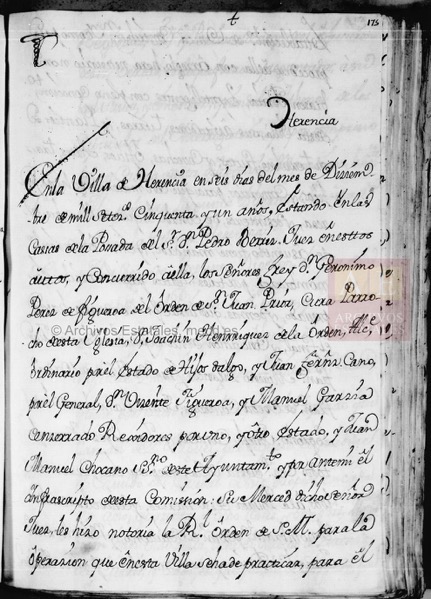 175
Herencia
En la Villa de Herencia en seis dias del mes de Diziem
bre de mill setezs. Cinquenta y un años, estando en las
Casas de la Posada del Sr. Dn. Pedro Juez en estos
autos, y Concurrido a ella, los Señores frey Dn. Geronimo
Perez de figueroa del Orden de Sn. Juan Prior, Cura Parro
cho de esta Yglesia, Dn. Joachin Henrriquez de la Orden, Alce.
ordinario por el estado de Hijos dalgo, y Juan Cano,
por el General, Dn. Vizente figueroa, y Manuel Garzia
Conserrado Rexidores por uno, y otro estado, y Juan
Manuel Chocano Ss.no de este Ayuntam.to y por antemi el
Infraescripto de esta Comission: Su Merced dicho Señor
Juez, les hizo notoria la Rl. Orden de S. M. para la
operazion que en esta Villa se ha de practicar, para el
© Archivos Estatales, mecd.es
ARCHIVOS